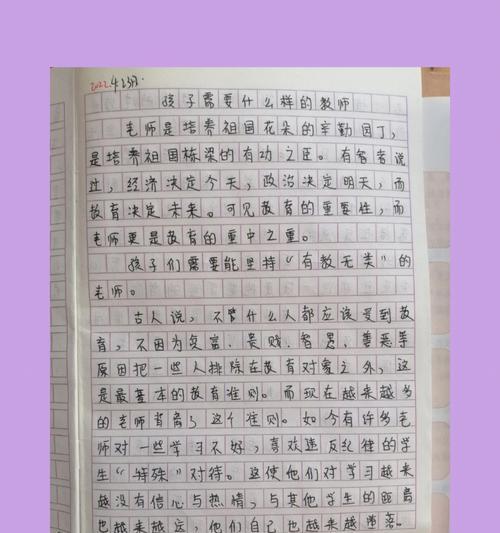 2022.4.23日.
孩子需要什么样的教师
老师是培养祖国花朵的辛勤园丁,
是培养祖国栋梁的有功之臣。有智者说
过,经济决定今天,政治决定明天,而
教育决定未来。可见教育的重要性,而
老师更是教育的重中之重。
孩子们需要能坚持“有教无类”的
老师。
古人说,不管什么人都应该受到教
育,不因为贫富、贵贱、智愚、善恶等
原因把一些人排除在教育对象之外,这
是最基本的教育准则。而现在越来越多
的老师背离了这个准则。如今有许多老
师对一些学习不好,喜欢违反纪律的学
生“特殊”对待。这使他们对学习越来
越没有信心与热情,与其他学生的距离
也越来越远,他们自己也越来越堕落。